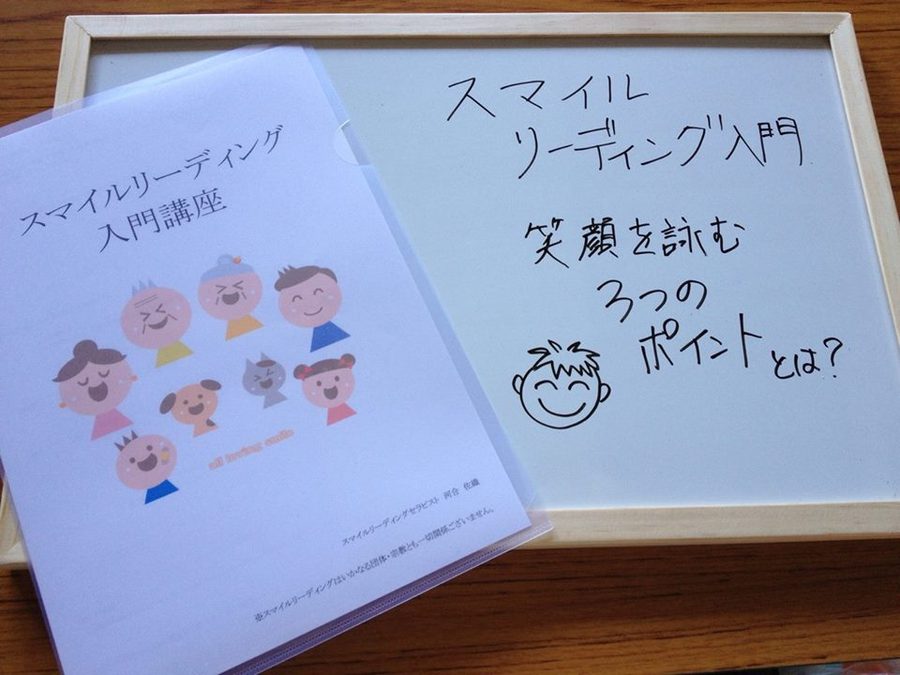 スマイルリーディング
入門講座
all loving smile
スマイルリーディングセラピスト 河合 佐織
※スマイルリーディングはいかなる団体・宗教とも一切関係ございません。
スマイル
リーディング入門
笑顔を詠む
3つの
ポイントとは?